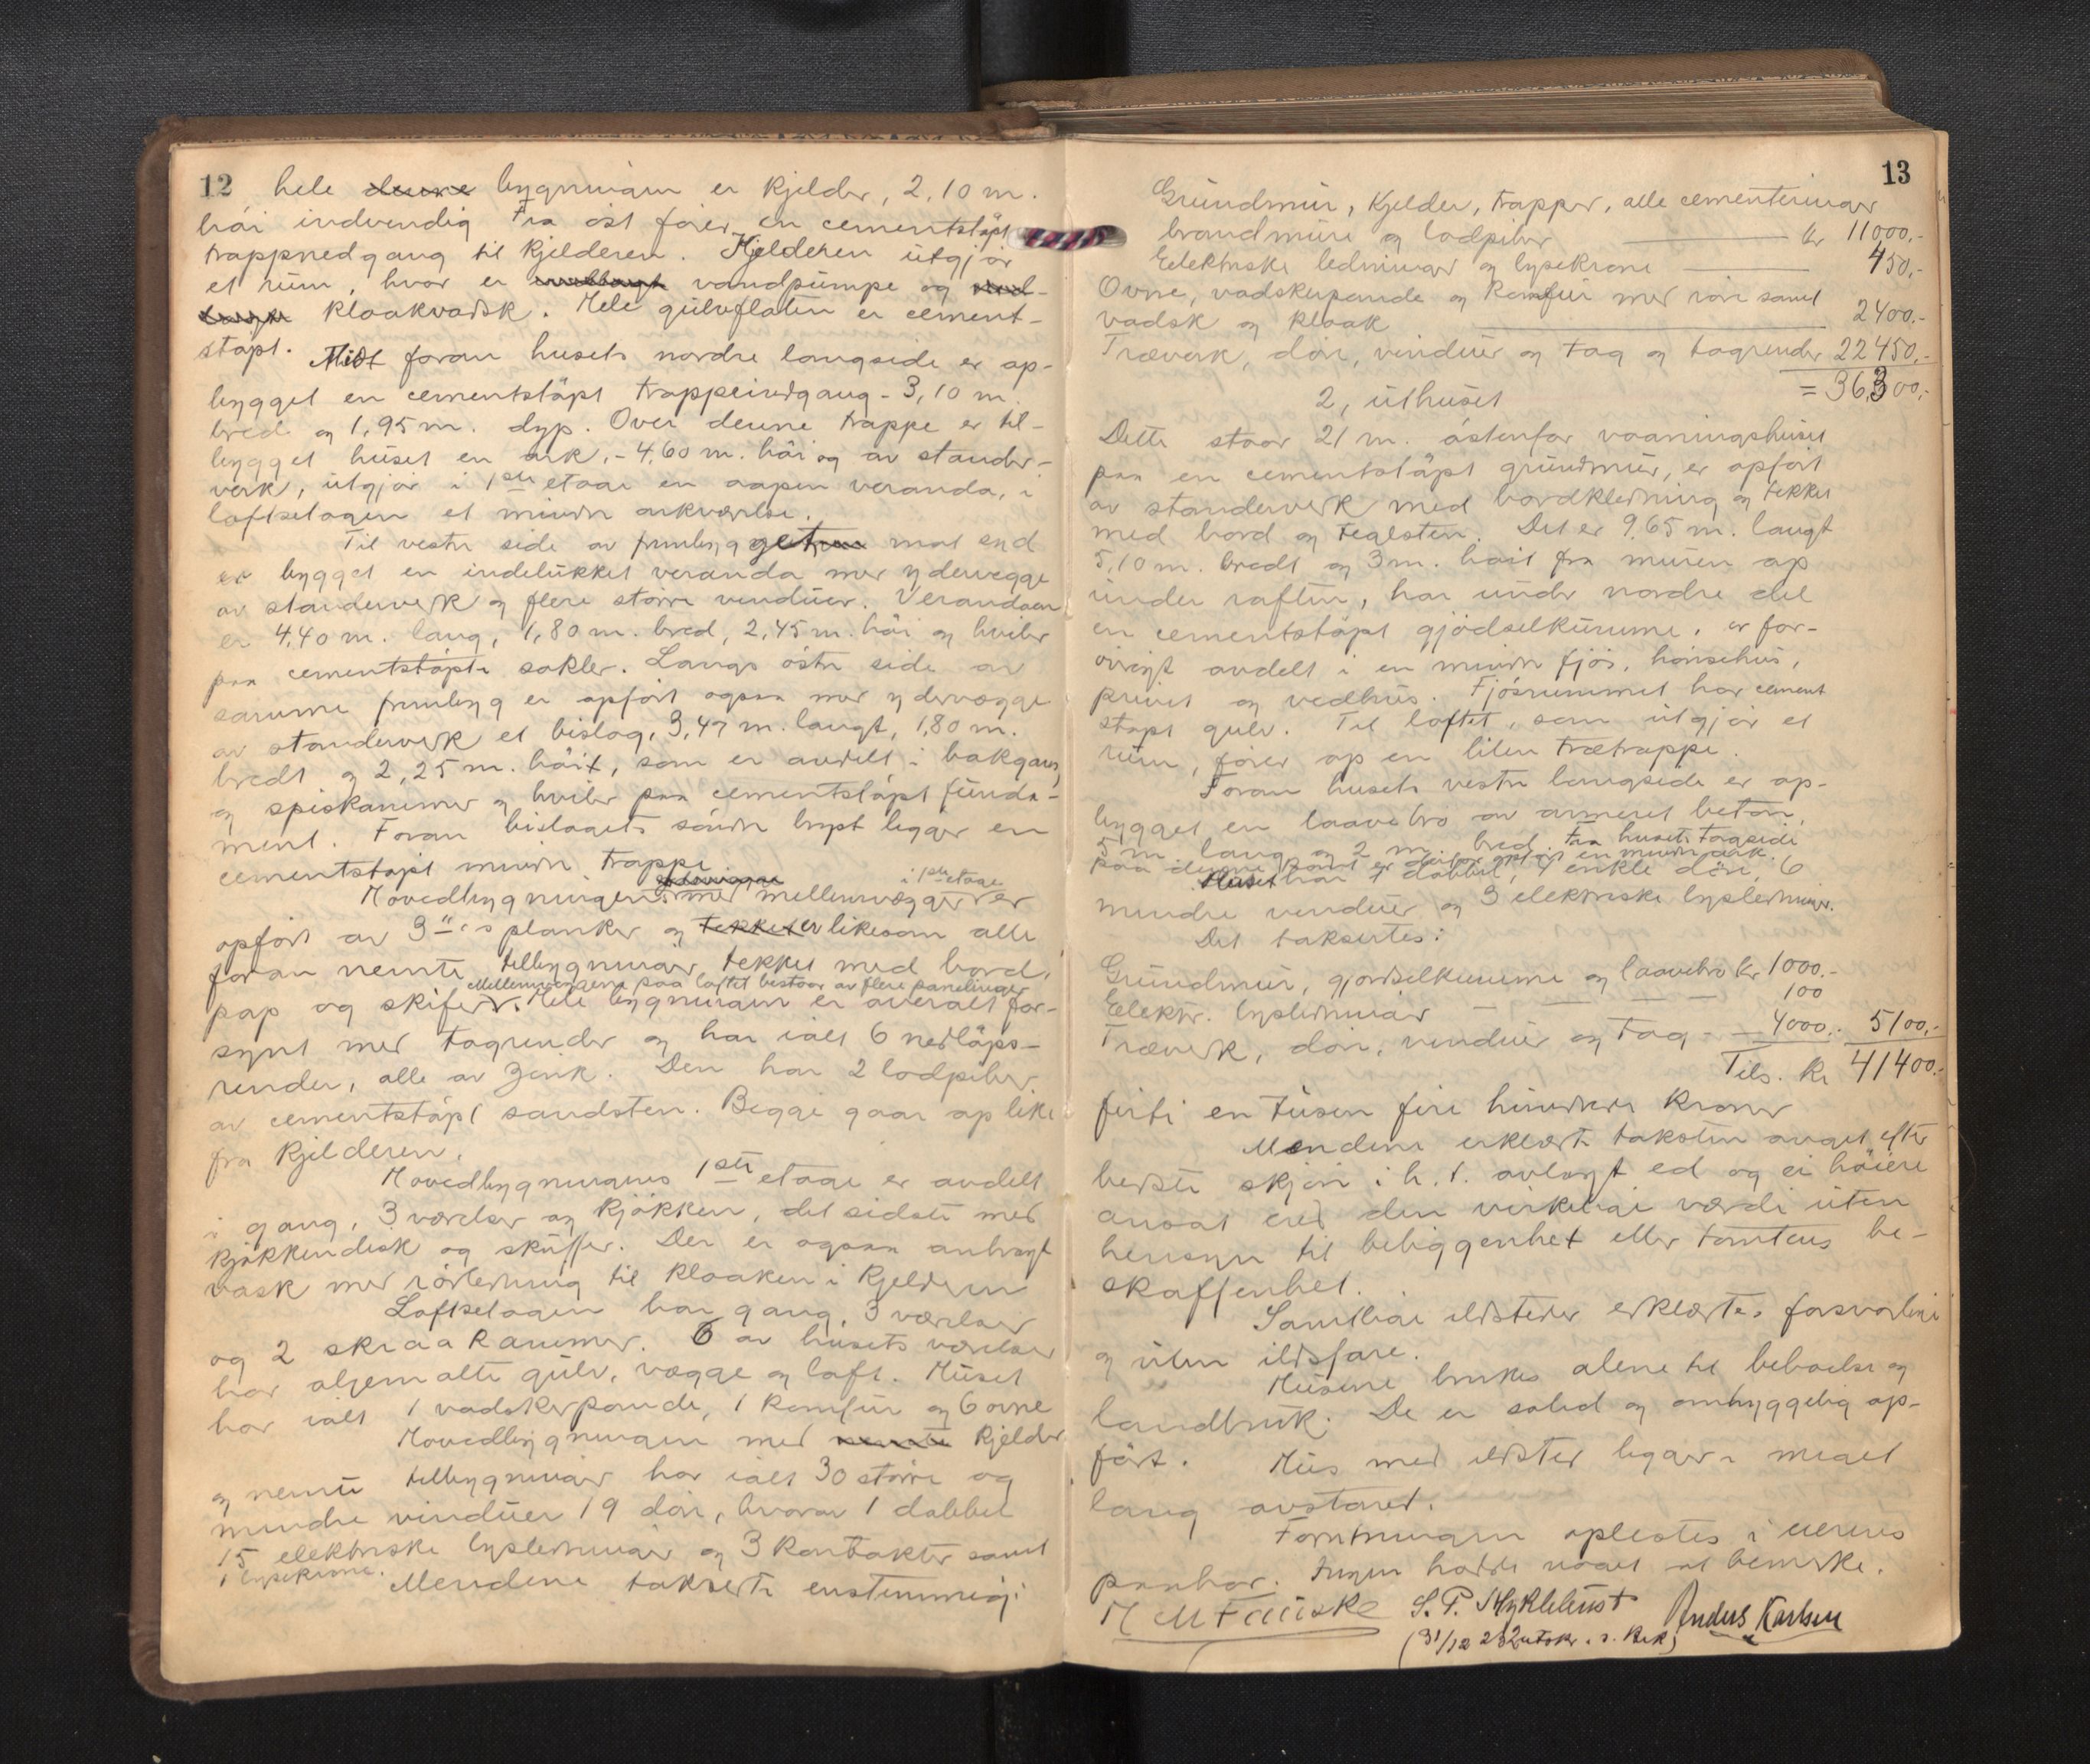 12 hele denne bygningen er kjelder, 2,10 m.
høi indvendig Fra øst fører en cementstøpt
trappnedgang til kjelderen. Kjelderen utgjør
et rum, hvor er vandpumpe og
kloakvadsk. Hele gulvflaten er cement-
støpt. Midt foran husets nordre langside er op-
bygget en cementstøpt trappeindgang - 3,10 m.
bred og 1,95 m. dyp. Over denne trappe er til-
bygget huset en ark, - 4,60 m. høi og av stander-
verk, utgjør i 1ste etage en aapen veranda, i
loftsetagen et mindre arkværelse.
Til vestre side av frembygget mot syd
er bygget en indelukket veranda med ydervegge
av standerverk og flere større vinduer. Verandaen
er 4,40 m. lang, 1,80 m. bred, 2,45 m. høi og hviler
paa cementstøpte sokler. Langs østre side av
samme frembyg er opført ogsaa med ydervægge
av standerverk et bislag, 3,47 m. langt, 1,80 m.
bredt og 2,25 m. høit, som er avdelt i bakgang
og spiskammer og hviler paa cementstøpt funda-
ment. Foran bislagets søndre bryst ligger en
cementstøpt mindre trappe.
Hovedbygningen med mellemvægger i 1ste etage er
opført av 3" planker og tekket er likesom alle
foran nemte tilbygninger tekket med bord,
Mellemvæggene paa loftet bestaar av flere panelinger
pap og skifer. Hele bygningen er overalt for-
synt med tagrender og har ialt 6 nedløps-
render, alle av Zink. Den har 2 lodpiber
av cementstøpt sandsten. Begge gaar op like
fra kjelderen.
Hovedbygningens 1ste etage er avdelt
i gang, 3 værelser og kjøkken, det sidste med
kjøkkendisk og skuffer. Der er ogsaa anbragt
vask med rørledning til kloaken i kjelderen
Loftsetagen har gang, 3 værelser
og 2 skraakammer. 6 av husets værelser
har oljemalte gulv, vægge og loft. Huset
har ialt 1 vadskerpande, 1 komfur og 6 ovne
Hovedbygningen med nemte kjelder
og nemte tilbygninger har ialt 30 større og
mindre vinduer 19 dør, hvorav 1 dobbel
15 elektriske lysledninger og 3 kontakter samt
1 lysekrone.
Mendene takserte enstemmig:
13
Grundmur, kjelder, trapper, alle cementeringer
brandmure og lodpiber kr 11000,-
Elektriske ledninger og lysekrone 450,-
Ovne, vadskerpande og komfur med rør samt
vadsk og kloak 2400.-
Træverk, dør, vinduer og tag og tagrender 22450,-
= 36,300,-
2, uthuset
Dette staar 21 m. østenfor vaaningshuset
paa en cementstøpt grundmur, er opført
av standerverk med bordkledning og tekket
med bord og teglsten. Det er 9,65 m. langt
5,10 m. bredt og 3 m. høit fra muren op
under raften, har under nordre del
en cementstøpt gjødselkumme, er for-
øvrigt avdelt i en mindre fjøs, hønsehus,
privet og vedhus. Fjøsrummet har cement
støpt gulv. Til loftet, som utgjør et
rum, fører op en liten trætrappe.
Foran husets vestre langside er op-
bygget en laavebro av armeret beton,
5 m. lang og 2 m. bred. Fra husets tagside
paa denne kant er derfor opført en mindre ark.
Huset har 1 dobbel, 4 enkle dør, 6
mindre vinduer og 3 elektriske lysledninger.
Det taksertes:
Grundmur, gjødselkumme og laavebro kr 1000.-
Elektr. lysledninger - 100
Træverk, dør, vinduer og tag - 4000.- 5100,-
Tils. kr 41400.-
firti en tusen fire hundrede kroner
Mendene erklærte taksten avgit efter
bedste skjøn i h. t. avlagt ed og ei høiere
ansat end den virkelige værdi uten
hensyn til beliggenhet eller tomtens be-
skaffenhet.
Samtlige ildsteder erklærtes forsvarlige
og uten ildsfare.
Husene brukes alene til beboelse og
landbruk. De er solid og omhyggelig op-
ført. Hus med ildsted ligger i meget
lang avstand.
Forretningen oplestes i deres
paahør. Ingen hadde noget at bemerke.
H M Fauske S. P. Myklebust Anders Karlsen
(31/12 23 2 utskr. s. Rek)